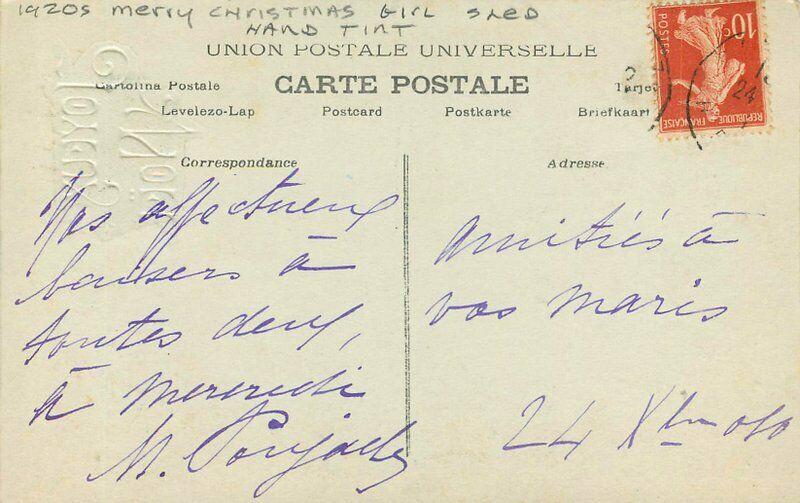 1920s merry CHRISTMAS GIRL SLED
HAND TINT
UNION POSTALE UNIVERSELLE
CARTE POSTALE
Cartolina Postale
Tarjet
Levelezo-Lap Postcard Postkarte Briefkaart
Joyeux
Noël
10c
POSTES
REPUBLIQUE FRANÇAISE
24
Correspondance
Nos affectueux
baisers à
toutes deux,
à mercredi
M.
Adresse
Amitiés à
vos maris
24 Xbre